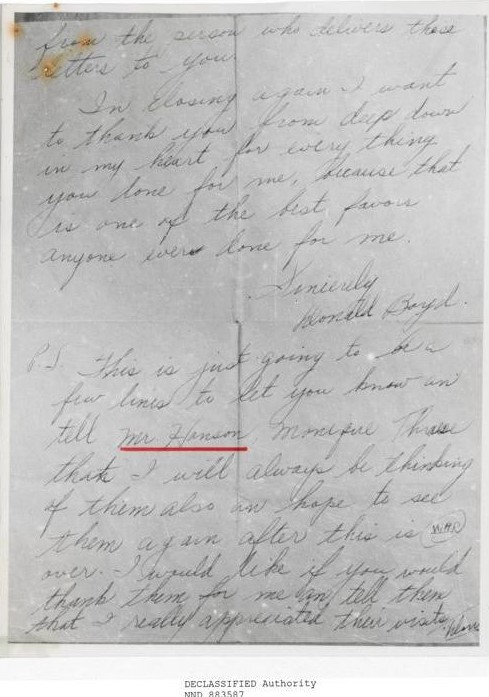 from the person who delivers these
letters to you.
In closing again I want
to thank you from deep down
in my heart for every thing
you done for me, because that
is one of the best favors
anyone ever done for me.
Sincerely
Donald Boyd.
P.S. This is just going to be a
few lines to let you know an
tell Mr Hanson, Monique
that I will always be thinking
of them also an hope to see
them again after this is
over. I would like if you would
thank them for me an tell them
that I really appreciated their visits.
DECLASSIFIED Authority
NND 883587